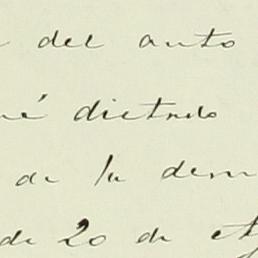 del auto
dictado
de la dem
de 20 de